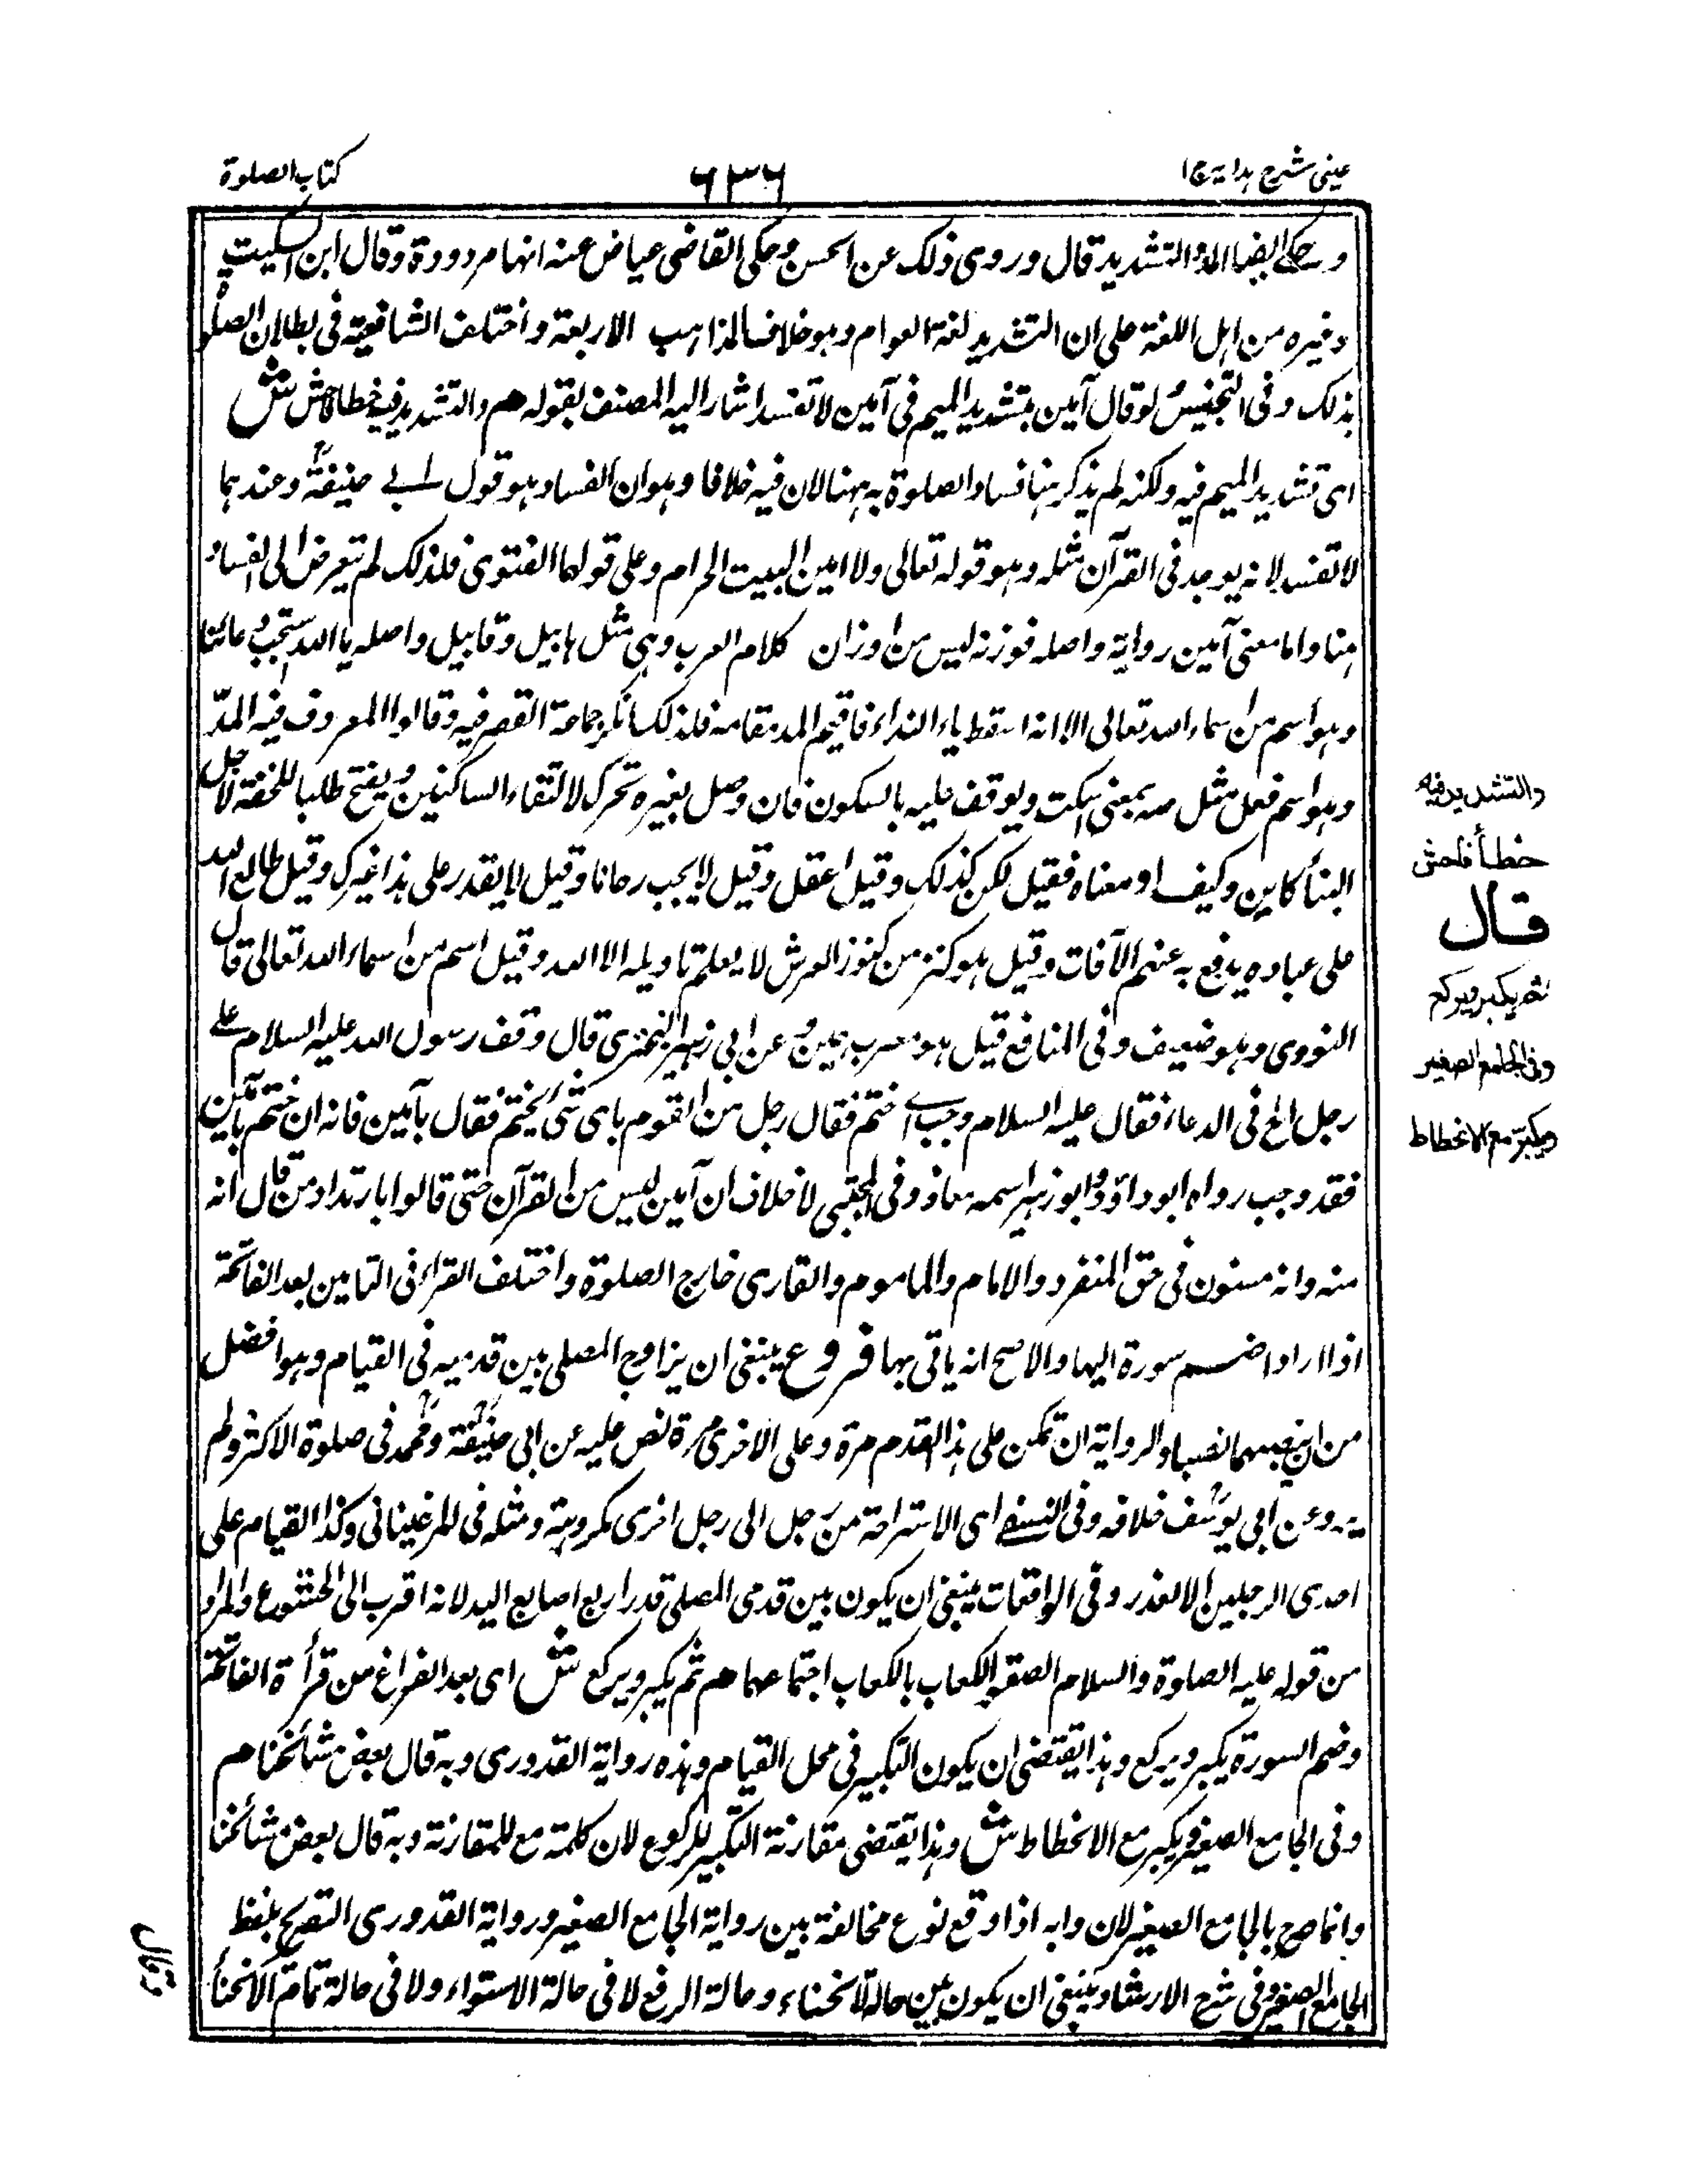 عينى شرح هداية ج ا
٦٣٦
كتاب الصلوة
وحكى ايضا المد والتشديد قال وروى ذلك عن الحسن وحكى القاضى عياض عنه انها مردودة وقال ابن السكيت
وغيره من اهل اللغة على ان التشديد لغة العوام وهو خلاف المذاهب الاربعة واختلف الشافعية فى بطلان الصلوة
بذلك وفى التجنيس لو قال آمين بتشديد الميم فى آمين لا تفسد اشار اليه المصنف بقوله هم والتشديد فيه خطأ فاحش ش
اى تشديد الميم فيه ولكنه لم يذكر هنا فساد الصلوة به ههنا لان فيه خلافا وهو ان الفساد هو قول ابى حنيفةؒ وعندهما
لا تفسد لانه يوجد فى القرآن مثله وهو قوله تعالى ولا امين البيت الحرام وعلى قولهما الفتوى فلذلك لم يتعرض الى الفساد
هنا واما معنى آمين رواية واصله فوزنه ليس من اوزان كلام العرب وهى مثل هابيل وقابيل واصله يا الله استجب دعائنا
وهو اسم من اسماء الله تعالى الا انه اسقط ياء النداء فاقيم المد مقامه فلذلك انكر جماعة القصر فيه وقالوا المعروف فيه المدّ
وهو اسم فعل مثل صه بمعنى اسكت ويوقف عليه بالسكون فان وصل بغيره تحرك لالتقاء الساكنين ويفتح طلبا للخفة لاجل
البنأ كاين وكيف او معناه فقيل لكن كذلك وقيل اعقل وقيل لا يجب رجانا وقيل لا يقدر على هذا غيرك وقيل طابع الله
على عباده يدفع به عنهم الآفات وقيل هو كنز من كنوز العرش لا يعلم تاويله الا الله وقيل اسم من اسماء الله تعالى قال
النووى وهو ضعيف وفى المنافع قيل هو معرب همين عن ابى زهير النميرى قال وقف رسول الله عليه السلام على
رجل الح فى الدعاء فقال عليه السلام وجب اختم فقال رجل من القوم باى شئ يختم فقال بآمين فانه ان ختم بآمين
فقد وجب رواه ابو داؤد وابو زهير اسمه معاذ وفى المجتبى لا خلاف ان آمين ليس من القرآن حتى قالوا بارتداد من قال انه
منه وانه مسنون فى حق المنفرد والامام والماموم والقارى خارج الصلوة واختلف القراء فى التامين بعد الفاتحة
اذا اراد ضم سورة اليها والاصح انه ياتى بها فروع ينبغى ان يزاوج المصلى بين قدميه فى القيام وهو افضل
من ان ينصبهما نصبا والرواية ان تمكن على هذا القدم مرة وعلى الاخرى مرة نص عليه عن ابى حنيفةؒ ومحمدؒ فى صلوة الاكثر ولم
يرو عن ابى يوسفؒ خلافه وفى النسفى اى الاستراحة من رجل الى رجل اخرى مكروهة ومثله فى المرغينانى وكذا القيام على
احدى الرجلين الا لعذر وفى الواقعات ينبغى ان يكون بين قدمى المصلى قدر اربع اصابع اليد لانه اقرب الى الخشوع والمراد
من قوله عليه الصلوة والسلام الصقوا الكعاب بالكعاب اجتماعهما هم ثم يكبر ويركع ش اى بعد الفراغ من قرأة الفاتحة
وضم السورة يكبر ويركع وهذا يقتضى ان يكون التكبير فى محل القيام وهذه رواية القدورى وبه قال بعض مشائخنا هم
وفى الجامع الصغير ويكبر مع الانحطاط ش وهذا يقتضى مقارنة التكبير للركوع لان كلمة مع للمقارنة وبه قال بعض مشائخنا
وانما صرح بالجامع الصغير لان دابه اذا وقع نوع مخالفة بين رواية الجامع الصغير ورواية القدورى التصريح بلفظ
الجامع الصغير وفى شرح الارشاد ينبغى ان يكون بين حالة الانحناء وحالة الرفع لا فى حالة الاستواء ولا فى حالة تمام الانحنأ
والتشديد فيه
خطأ فاحش
قال
ثم يكبر ويركع
وفى الجامع الصغير
ويكبر مع الانحطاط
وقال